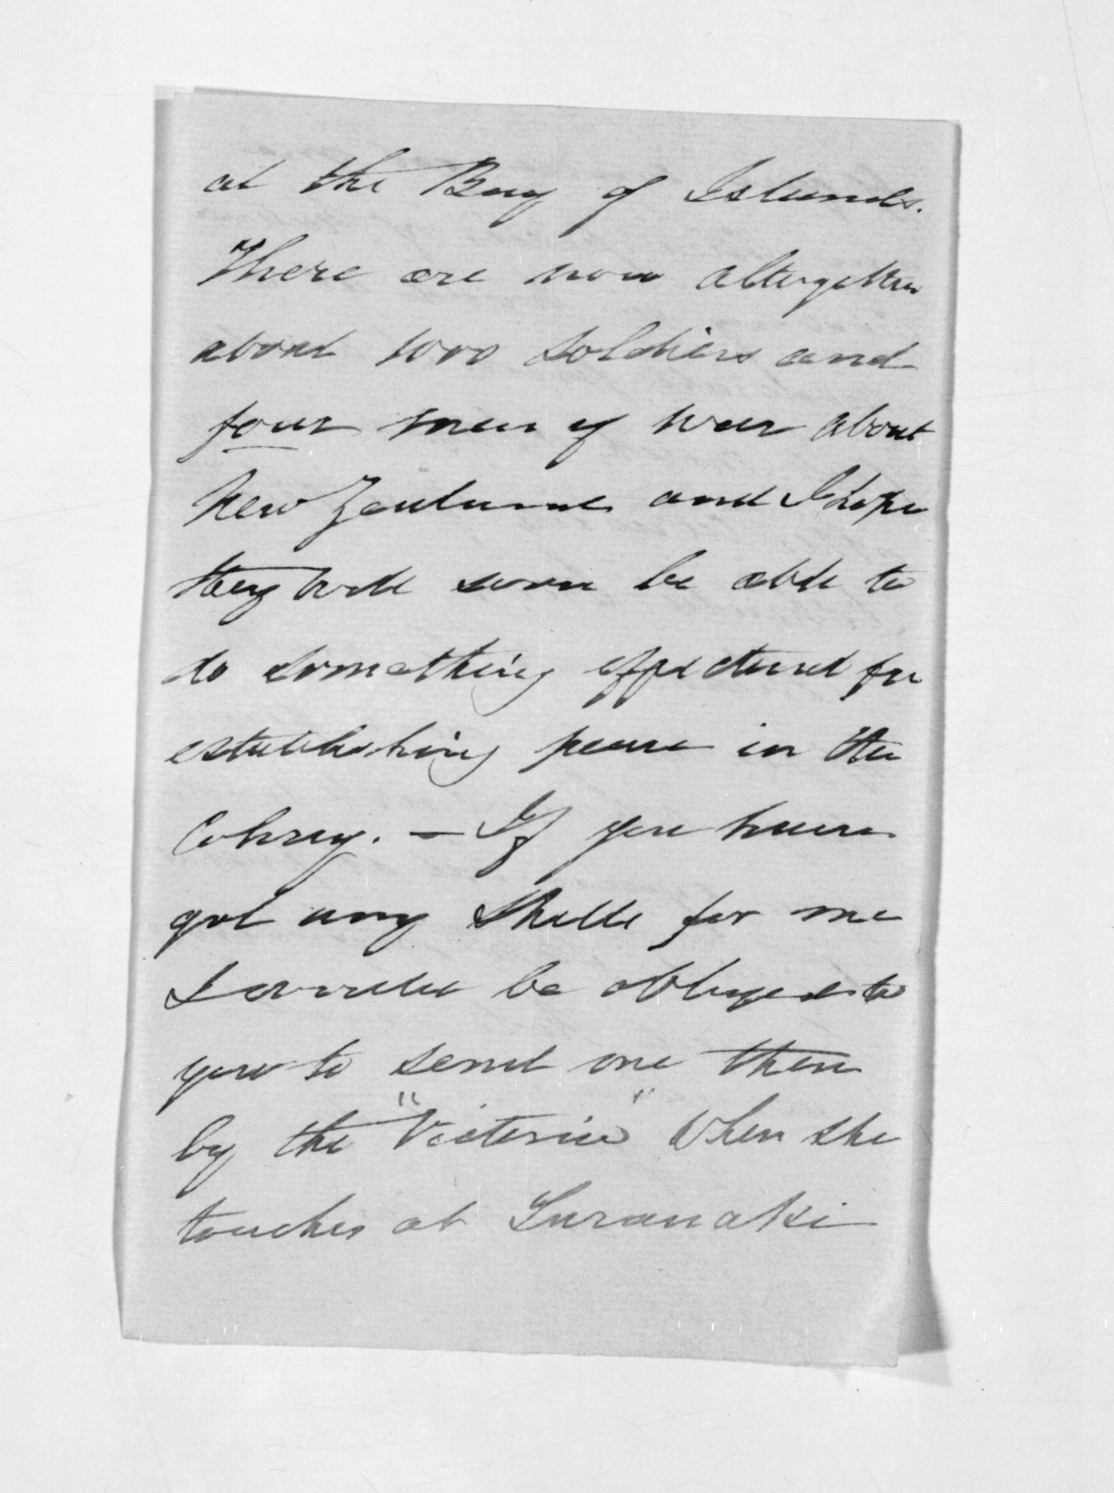 at the Bay of Islands.
There are now altogether
about 1000 soldiers and
four men of war about
New Zealand and I hope
they will soon be able to
do something effectual for
establishing peace in the
Colony. — If you have
got any shells for me
I would be obliged to
you to send me them
by the "Victoria" when she
touches at Turanaki